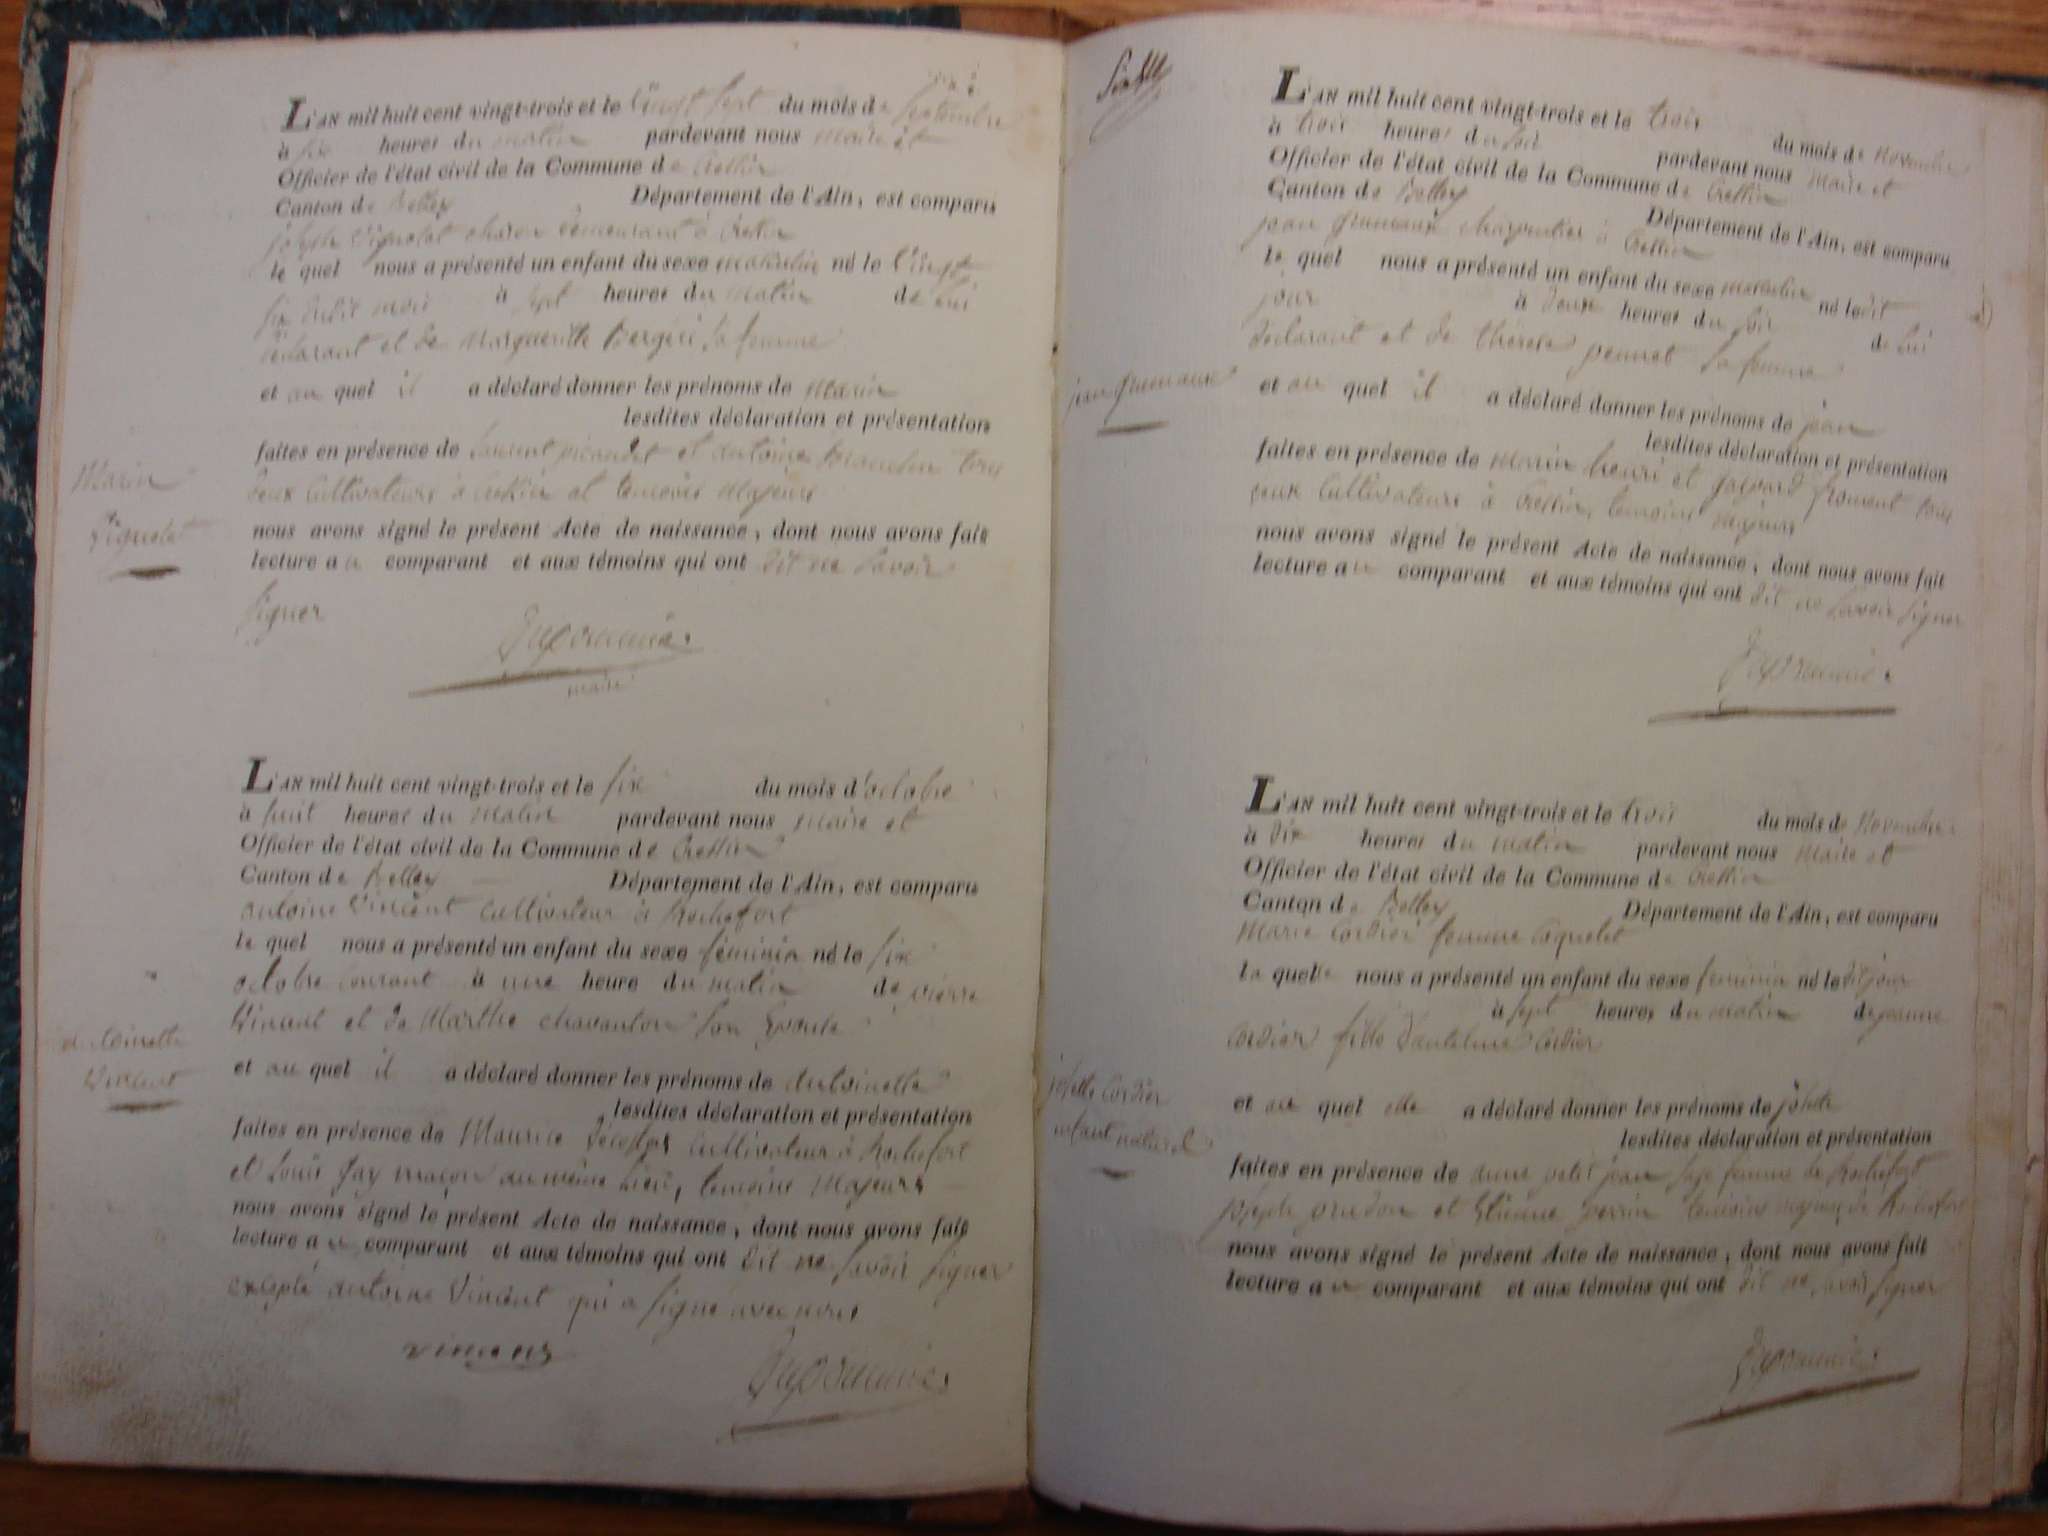 L'AN mil huit cent vingt-trois et le vingt sept du mois de Septembre
à six heures du matin pardevant nous maire et
Officier de l'état civil de la Commune de Cressin
Canton de Belley Département de l'Ain, est comparu
joseph demeurant à Cressin
le quel nous a présenté un enfant du sexe masculin né le vingt
six dudit mois à sept heures du matin de lui
déclarant et de Marguerite sa femme
et au quel il a déclaré donner les prénoms de Marin
lesdites déclaration et présentation
faites en présence de Laurent et antoine tous
deux Cultivateurs à Cressin et temoins Majeurs
Marin
nous avons signé le présent Acte de naissance, dont nous avons fait
lecture au comparant et aux témoins qui ont dit ne savoir
signer
maire
L'AN mil huit cent vingt-trois et le six du mois d'octobre
à huit heures du Matin pardevant nous Maire et
Officier de l'état civil de la Commune de Cressin
Canton de Belley Département de l'Ain, est comparu
antoine Vincent Cultivateur à Rochefort
le quel nous a présenté un enfant du sexe féminin né le six
octobre Courant à une heure du matin de pierre
Vincent et de Marthe son Epouse
Antoinette
Vincent
et au quel il a déclaré donner les prénoms de Antoinette
lesdites déclaration et présentation
faites en présence de Maurice Cultivateur à Rochefort
et Louis Jay maçon au même Lieu, temoins Majeurs
nous avons signé le présent Acte de naissance, dont nous avons fait
lecture au comparant et aux témoins qui ont dit ne savoir signer
excepté Antoine Vincent qui a signé avec nous
Vincent
L'AN mil huit cent vingt-trois et le trois du mois de Novembre
à trois heures du soir pardevant nous Maire et
Officier de l'état civil de la Commune de Cressin
Canton de Belley Département de l'Ain, est comparu
jean charpentier à Cressin
le quel nous a présenté un enfant du sexe masculin né ledit
jour à deux heures du soir de lui
déclarant et de thérèse sa femme
jean
et au quel il a déclaré donner les prénoms de jean
lesdites déclaration et présentation
faites en présence de Marin henri et froment tous
deux Cultivateurs à Cressin, temoins Majeurs
nous avons signé le présent Acte de naissance, dont nous avons fait
lecture au comparant et aux témoins qui ont dit ne savoir signer
L'AN mil huit cent vingt-trois et le trois du mois de Novembre
à dix heures du matin pardevant nous Maire et
Officier de l'état civil de la Commune de Cressin
Canton de Belley Département de l'Ain, est comparu
Marie Cordier femme Coquelet
la quelle nous a présenté un enfant du sexe féminin né ledit jour
à sept heures du matin de jeanne
Cordier fille Cordier
josette Cordier
enfant naturel
et au quel elle a déclaré donner les prénoms de josette
lesdites déclaration et présentation
faites en présence de anne petit jean sage femme de Rochefort
joseph prudon et Etienne perrin temoins majeurs de Rochefort
nous avons signé le présent Acte de naissance, dont nous avons fait
lecture au comparant et aux témoins qui ont dit ne savoir signer